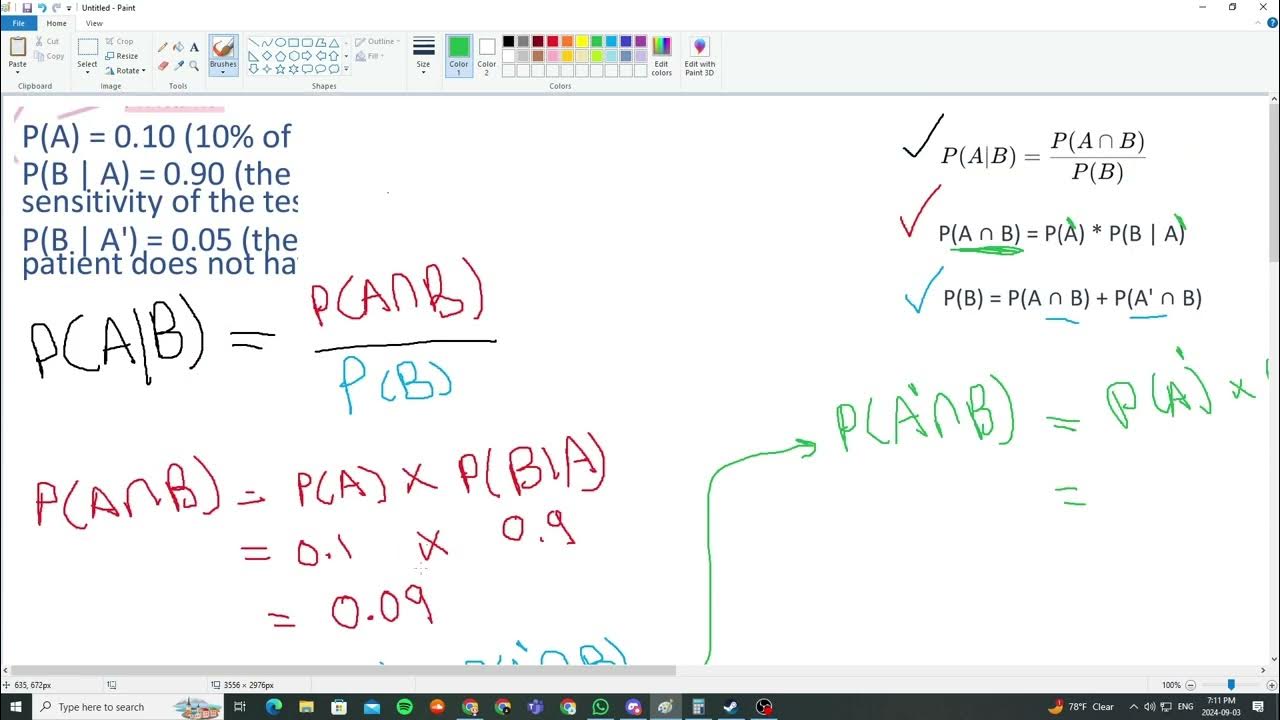 Untitled - Paint
File Home View
Paste Cut Copy Clipboard
Select Crop Resize Rotate Image
Tools
Brushes
Outline Fill Shapes
Size
Color 1 Color 2 Edit colors Colors
Edit with Paint 3D
P(A) = 0.10 (10% of
P(B | A) = 0.90 (the
sensitivity of the tes
P(B | A') = 0.05 (the
patient does not ha
P(A|B) = P(A ∩ B) / P(B)
P(A ∩ B) = P(A') * P(B | A)'
P(B) = P(A ∩ B) + P(A' ∩ B)
P(A|B) = P(A∩B) / P(B)
P(A'∩B) = P(A') ×
=
P(A∩B) = P(A) × P(B|A)
= 0.1 × 0.9
= 0.09
635, 672px 3556 × 2976px 100%
Type here to search 78°F Clear ENG 7:11 PM 2024-09-03